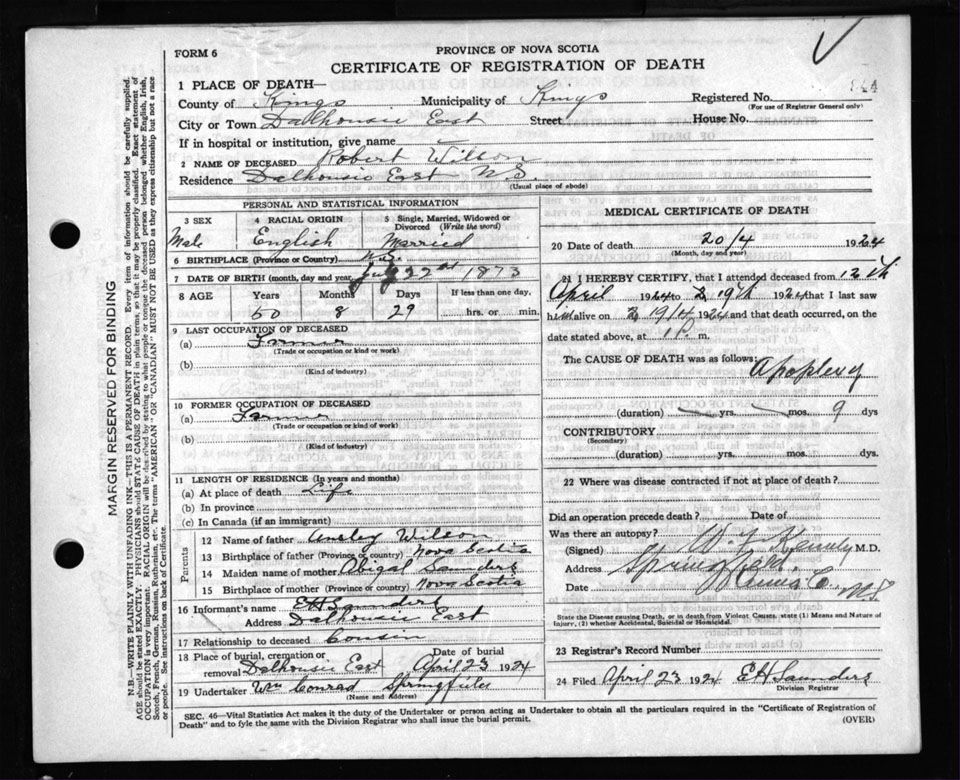 FORM 6
PROVINCE OF NOVA SCOTIA
CERTIFICATE OF REGISTRATION OF DEATH
1 PLACE OF DEATH—
County of Kings Municipality of Kings Registered No.
(For use of Registrar General only)
City or Town Dalhousie East Street House No.
If in hospital or institution, give name
2 NAME OF DECEASED Robert Wilson
Residence Dalhousie East N.S.
(Usual place of abode)
PERSONAL AND STATISTICAL INFORMATION
3 SEX 4 RACIAL ORIGIN 5 Single, Married, Widowed or Divorced (Write the word)
Male English Married
6 BIRTHPLACE (Province or Country) N.S.
7 DATE OF BIRTH (month, day and year) July 22 1873
8 AGE Years Months Days If less than one day,
50 8 29 hrs. or min.
9 LAST OCCUPATION OF DECEASED
(a) Farmer
(Trade or occupation or kind of work)
(b)
(Kind of industry)
10 FORMER OCCUPATION OF DECEASED
(a) Farmer
(Trade or occupation or kind of work)
(b)
(Kind of industry)
11 LENGTH OF RESIDENCE (In years and months)
(a) At place of death Life
(b) In province
(c) In Canada (if an immigrant)
Parents
12 Name of father Ansley Wilson
13 Birthplace of father (Province or country) Nova Scotia
14 Maiden name of mother Abigal Saunders
15 Birthplace of mother (Province or country) Nova Scotia
16 Informant's name E H Saunders
Address Dalhousie East
17 Relationship to deceased Cousin
18 Place of burial, cremation or removal Dalhousie East Date of burial April 23 1924
19 Undertaker Wm Conrad Springfield
(Name and Address)
MEDICAL CERTIFICATE OF DEATH
20 Date of death 20/4 1924
(Month, day and year)
21 I HEREBY CERTIFY, that I attended deceased from 12th
April 1924 to 19th 1924 that I last saw
him alive on 19/4 1924 and that death occurred, on
date stated above, at 1 P. m.
The CAUSE OF DEATH was as follows:
Apoplexy
(duration) yrs. mos. 9 dys
CONTRIBUTORY
(Secondary)
(duration) yrs. mos. dys.
22 Where was disease contracted if not at place of death?
Did an operation precede death? Date of
Was there an autopsy?
(Signed) M.D.
Address Springfield
Date Annis C. N.S.
State the Disease causing Death, or in death from Violent Causes, state (1) Means and Nature of
Injury, (2) whether Accidental, Suicidal or Homicidal.
23 Registrar's Record Number
24 Filed April 23 1924 E H Saunders
Division Registrar
SEC. 46—Vital Statistics Act makes it the duty of the Undertaker or person acting as Undertaker to obtain all the particulars required in the "Certificate of Registration of
Death" and to fyle the same with the Division Registrar who shall issue the burial permit. (OVER)
MARGIN RESERVED FOR BINDING
N.B.—WRITE PLAINLY WITH UNFADING INK—THIS IS A PERMANENT RECORD. Every item of information should be carefully supplied.
AGE should be stated EXACTLY. PHYSICIANS should STATE CAUSE OF DEATH in plain terms, so that it may be properly classified. Exact statement of
OCCUPATION is very important. RACIAL ORIGIN will be described by stating to what people or tongue the deceased person belonged, whether English, Irish,
Scotch, French, German, Russian, Ruthenian, etc. The terms "AMERICAN" or "CANADIAN" MUST NOT BE USED as they express citizenship but not a race
or people. See instructions on back of Certificate.